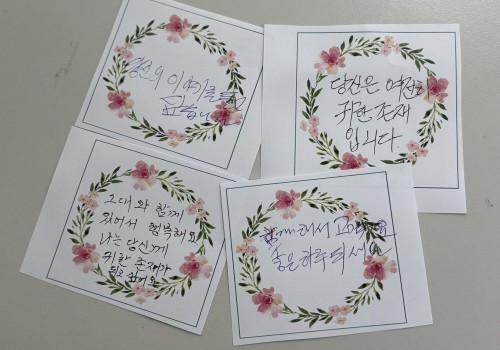 당신의 이야기를 듣고
싶습니다
당신은 여전히
귀한 존재
입니다.
그대와 함께
있어서 행복해요
나는 당신께
귀한 존재가
되고 싶어요
함께해서 고마워요
좋은 하루 되세요